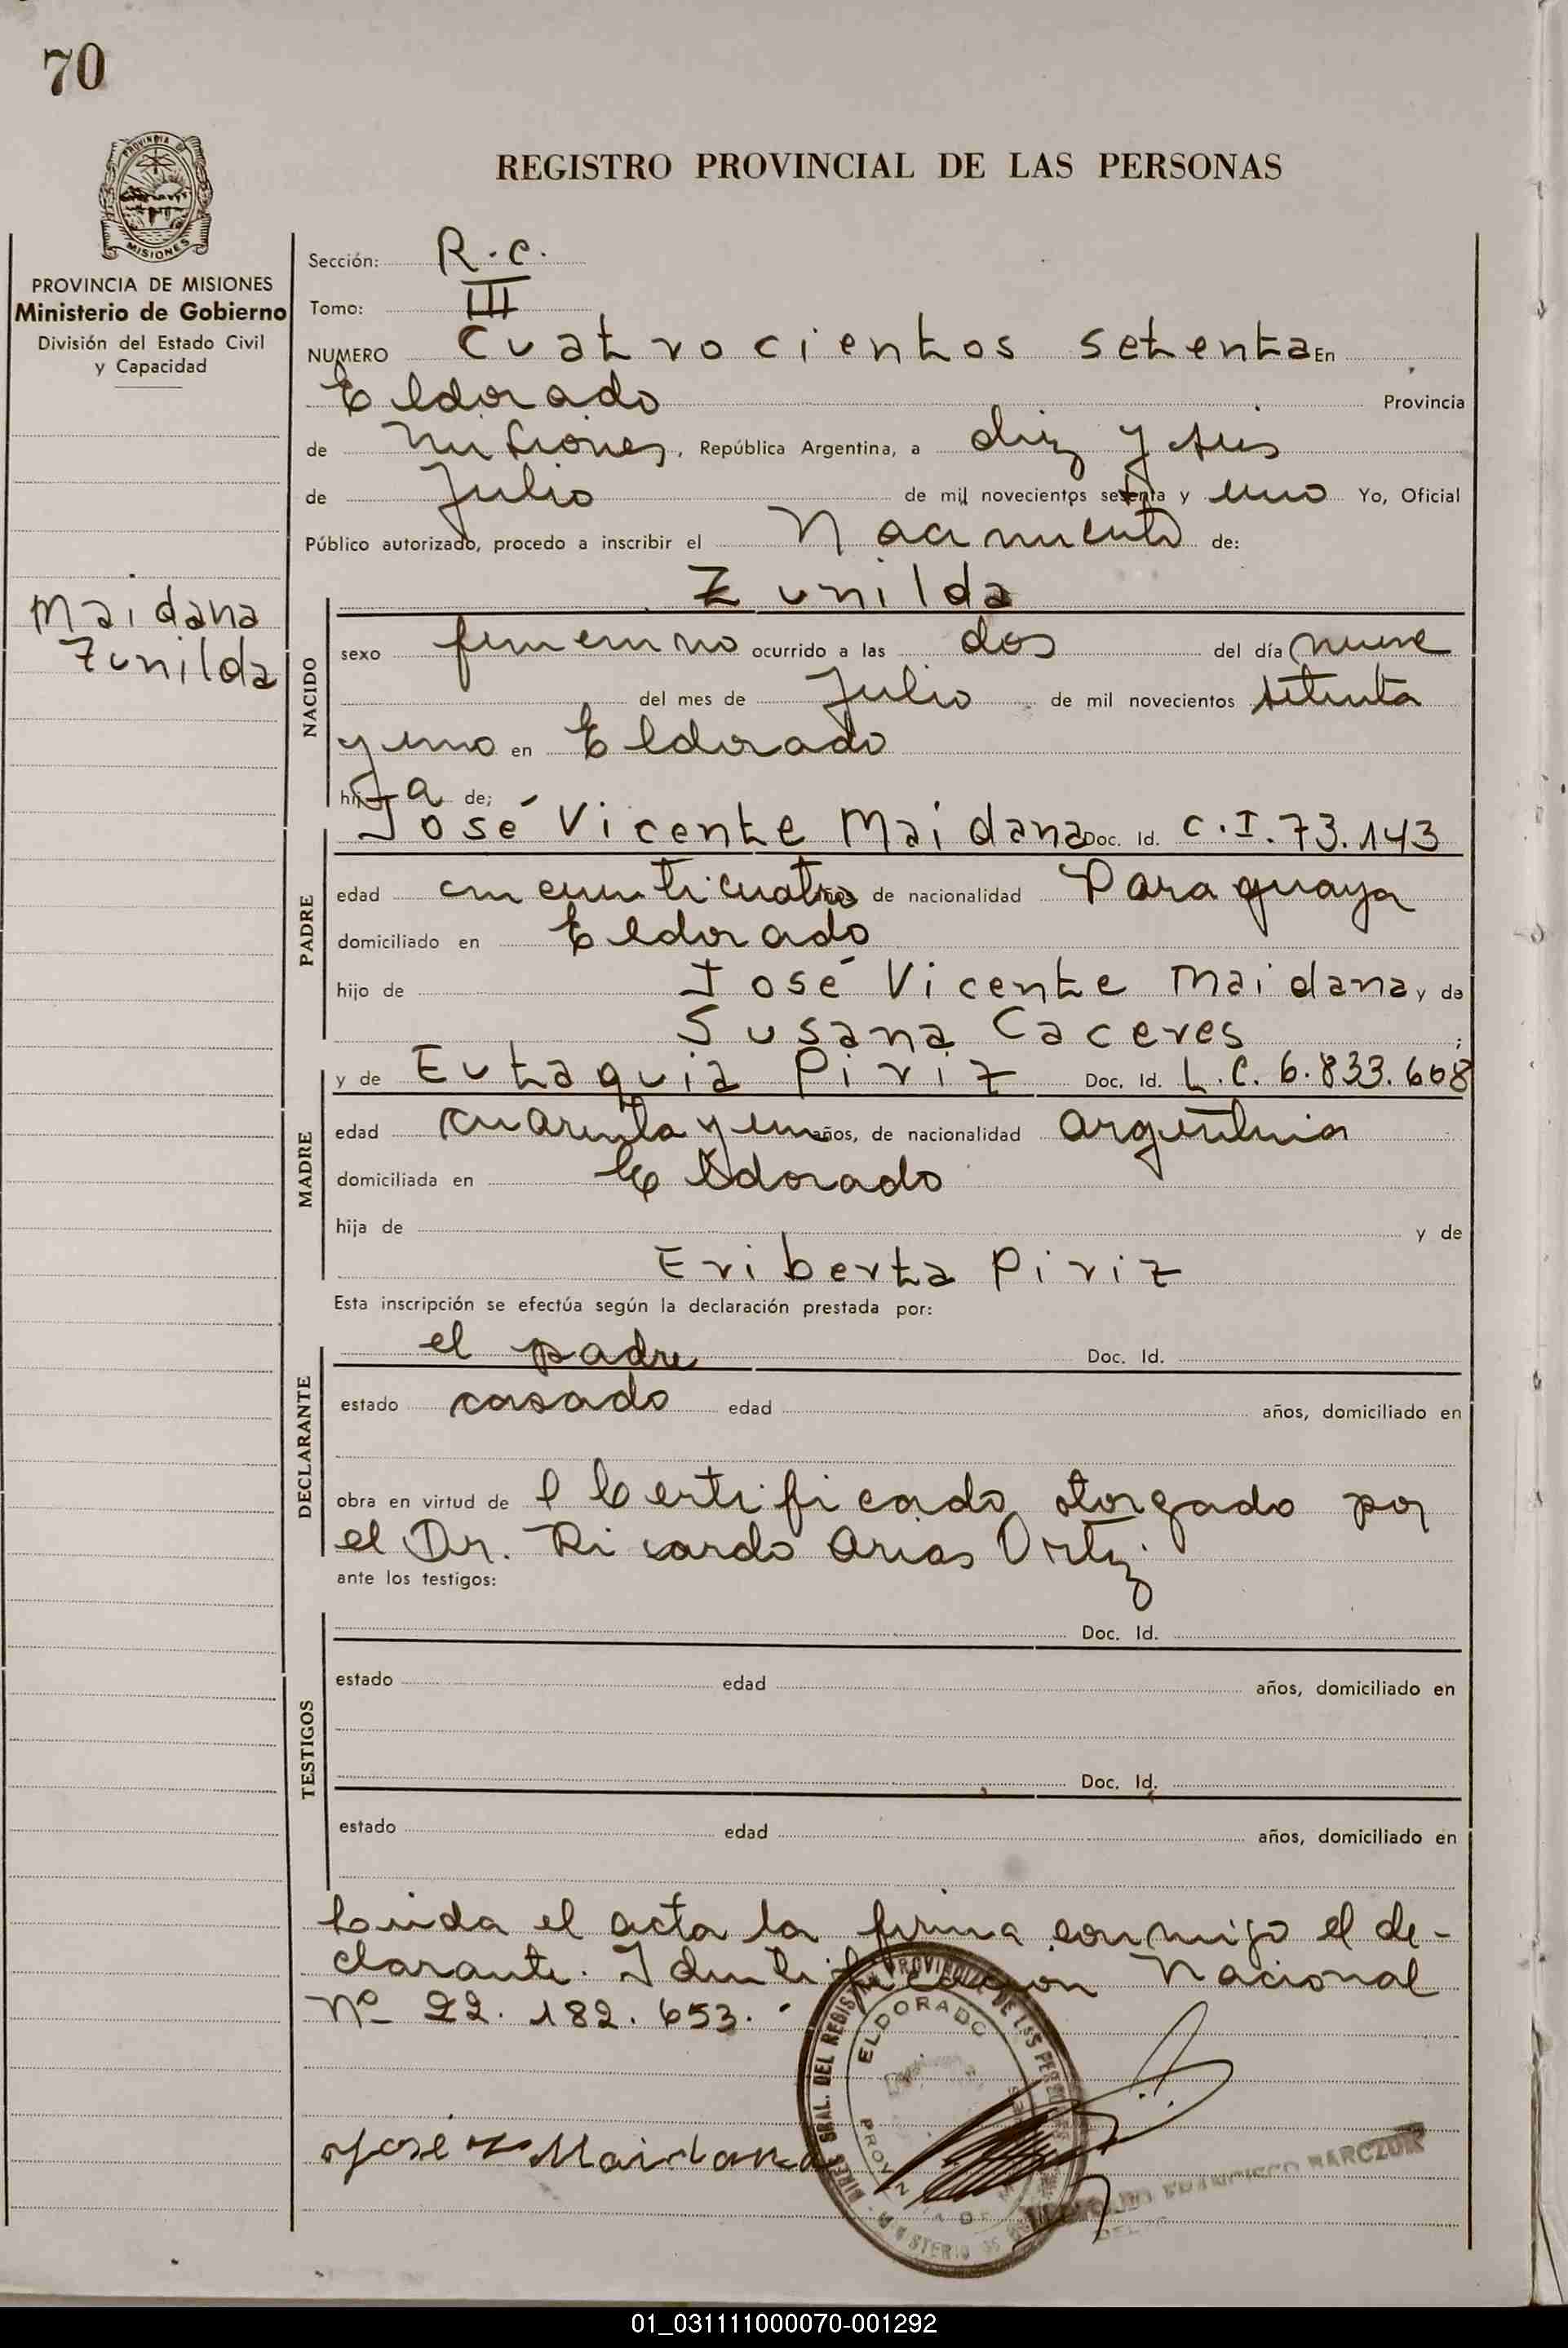 70
REGISTRO PROVINCIAL DE LAS PERSONAS
PROVINCIA DE MISIONES
PROVINCIA DE MISIONES
Ministerio de Gobierno
División del Estado Civil
y Capacidad
Maidana
Zunilda
Sección: R.C.
Tomo: III
NUMERO Cuatrocientos setenta En
Eldorado Provincia
de Misiones, República Argentina, a diez y seis
de Julio de mil novecientos setenta y uno Yo, Oficial
Público autorizado, procedo a inscribir el Nacimiento de:
Zunilda
NACIDO
sexo femenino ocurrido a las dos del día nueve
del mes de Julio de mil novecientos setenta
y uno en Eldorado
hija de;
José Vicente Maidana Doc. Id. C.I. 73.143
PADRE
edad cincuenticuatro años de nacionalidad Paraguaya
domiciliado en Eldorado
hijo de José Vicente Maidana y de
Susana Caceres ;
y de Eutaquia Piriz Doc. Id. L.C. 6.833.608
MADRE
edad cuarenta y un años, de nacionalidad argentina
domiciliada en Eldorado
hija de y de
Eriberta Piriz
Esta inscripción se efectúa según la declaración prestada por:
el padre Doc. Id.
DECLARANTE
estado casado edad años, domiciliado en
obra en virtud de l Certificado otorgado por
el Dr. Ricardo Arias Ortiz.
ante los testigos:
Doc. Id.
TESTIGOS
estado edad años, domiciliado en
Doc. Id.
estado edad años, domiciliado en
Leida el acta la firma conmigo el de-
clarante. Identificacion Nacional
Nº 22.182.653.-
José V Maidana
ELDORADO
FRANCISCO BARCZUK
01_031111000070-001292